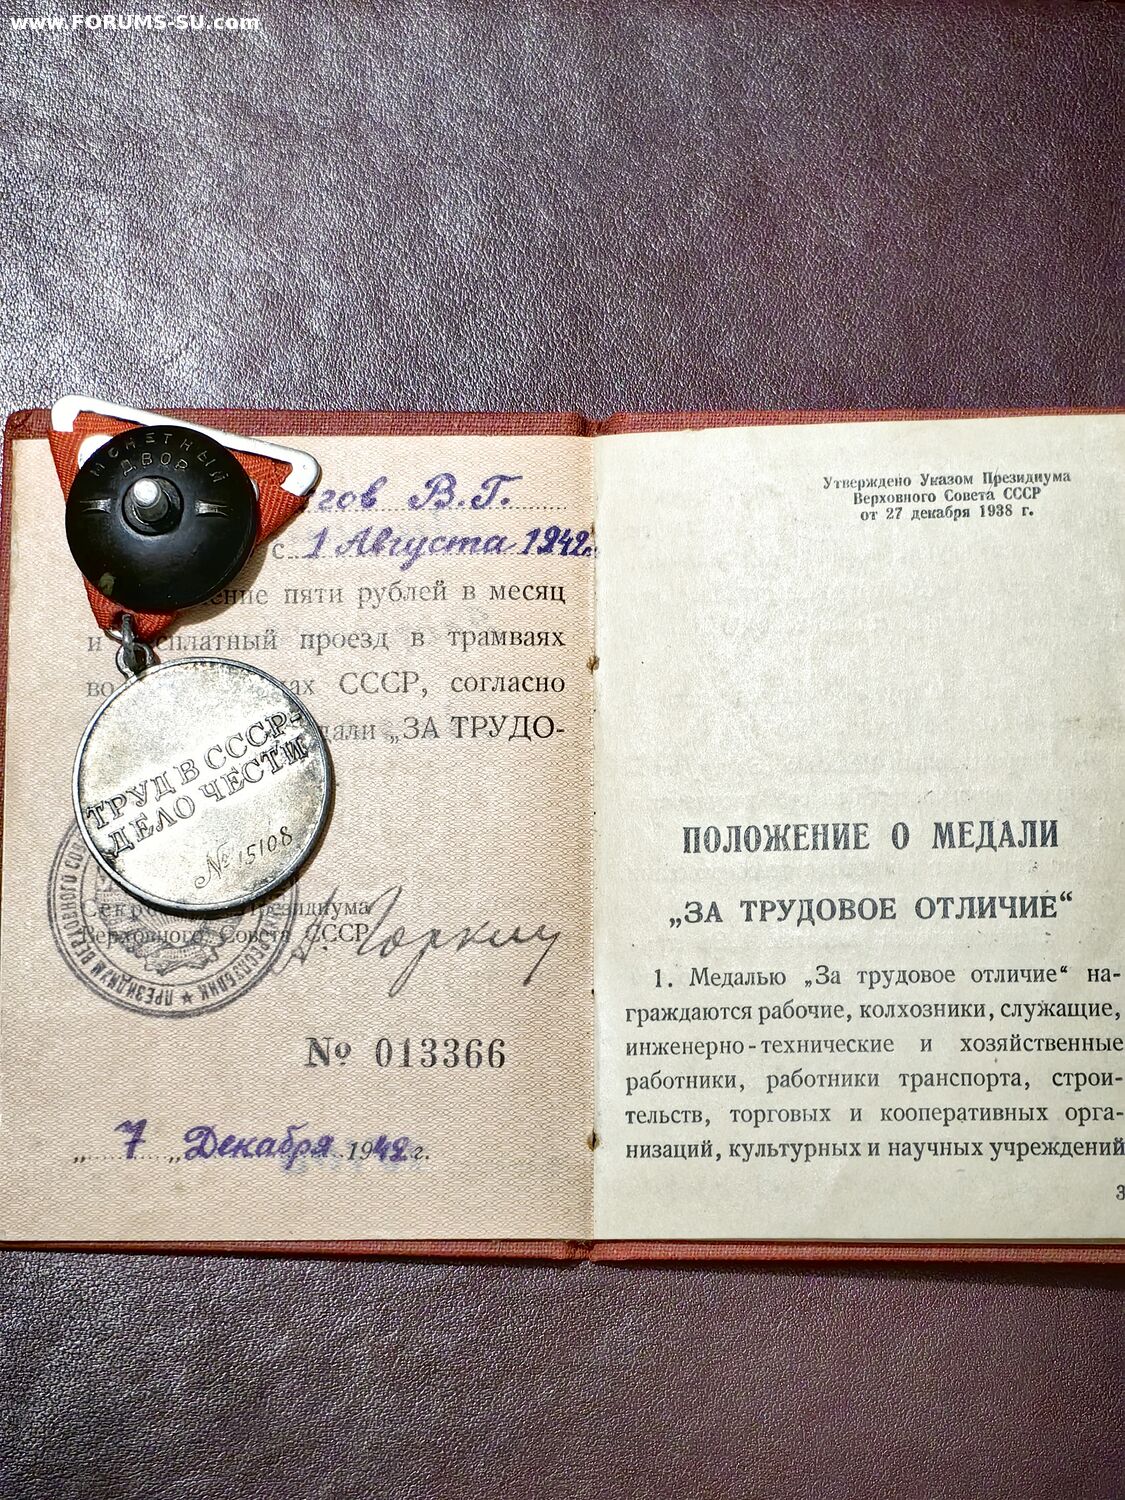 www.FORUMS-SU.com
МОНЕТНЫЙ
ДВОР
В.Г.
с 1 Августа 1942г.
пяти рублей в месяц
и проезд в трамваях
во СССР, согласно
„ЗА ТРУДО-
ТРУД В СССР-
ДЕЛО ЧЕСТИ
№ 15108
Президиума
Верховного Совета СССР
А. Горкин
ПРЕЗИДИУМ ВЕРХОВНОГО
№ 013366
„ 7 „ Декабря 1942 г.
Утверждено Указом Президиума
Верховного Совета СССР
от 27 декабря 1938 г.
ПОЛОЖЕНИЕ О МЕДАЛИ
„ЗА ТРУДОВОЕ ОТЛИЧИЕ“
1. Медалью „За трудовое отличие“ на-
граждаются рабочие, колхозники, служащие,
инженерно-технические и хозяйственные
работники, работники транспорта, строи-
тельств, торговых и кооперативных орга-
низаций, культурных и научных учреждений
3